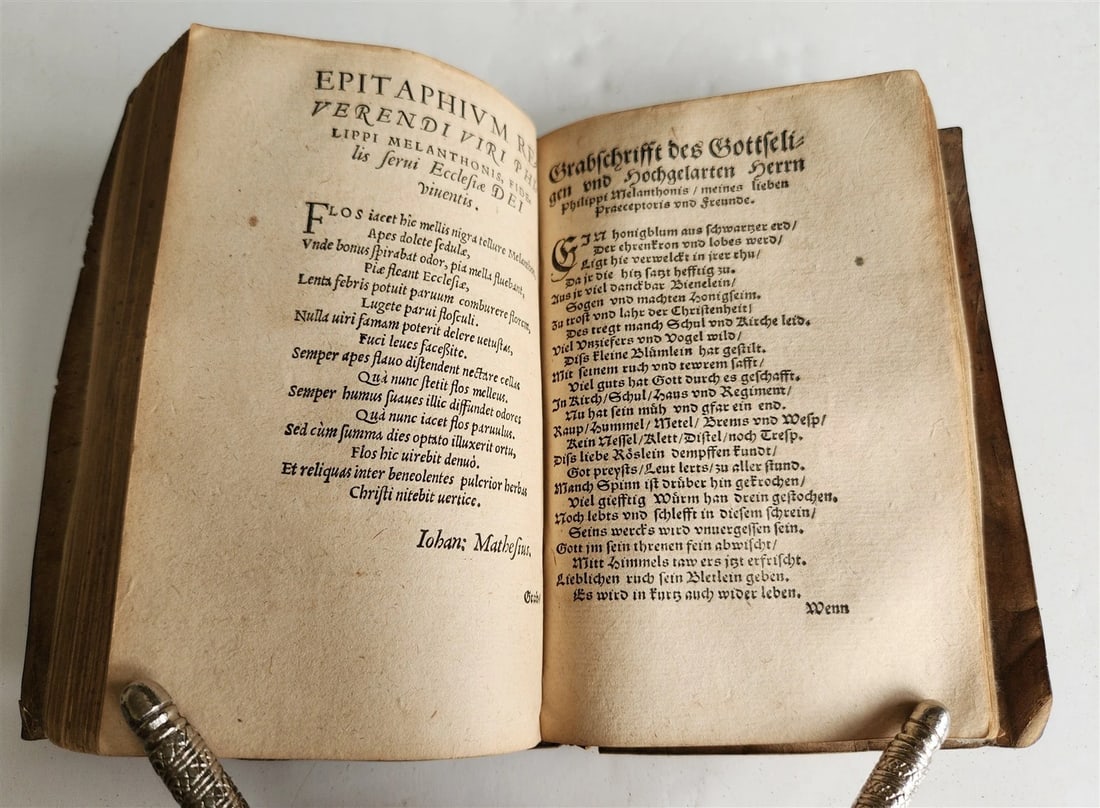 EPITAPHIVM RE
VERENDI VIRI PHI
LIPPI MELANTHONIS, FIDE,
lis serui Ecclesiæ DEI
viuentis.
FLOS iacet hîc mellis nigra tellure Melanthon,
Apes dolete sedulæ,
Vnde bonus spirabat odor, pia mella fluebant,
Piæ fleant Ecclesiæ,
Lenta febris potuit paruum comburere florem,
Lugete parui flosculi.
Nulla uiri famam poterit delere uetustas,
Fuci leues faceßite.
Semper apes flauo distendent nectare cellas
Quà nunc stetit flos melleus.
Semper humus suaues illic diffundet odores
Quà nunc iacet flos paruulus.
Sed cùm summa dies optato illuxerit ortu,
Flos hic uirebit denuò.
Et reliquas inter beneolentes pulcrior herbas
Christi nitebit uertice.
Iohan: Mathesius.
Grab-
Grabschrifft des Gottseli-
gen vnd Hochgelarten Herrn
Philippi Melanthonis / meines lieben
Praeceptoris vnd Freunde.
EIN honigblum aus schwartzer erd/
Der ehrenkron vnd lobes werd/
Ligt hie verwelckt in jrer rhu/
Da jr die hitz satzt hefftig zu.
Aus jr viel danckbar Bienelein/
Sogen vnd machten Honigseim.
Zu trost vnd lahr der Christenheit/
Des tregt manch Schul vnd Kirche leid.
Viel Vnziefers vnd Vogel wild/
Diss kleine Blümlein hat gestilt.
Mit seinem ruch vnd tewrem safft/
Viel guts hat Gott durch es geschafft.
In Kirch/Schul/Haus vnd Regiment/
Nu hat sein müh vnd gfar ein end.
Raup/Hummel/Metel/Brems vnd Wesp/
Kein Nessel/Klett/Distel/noch Tresp.
Diss liebe Röslein dempffen kundt/
Got preysts/Leut lerts/zu aller stund.
Manch Spinn ist drüber hin gekrochen/
Viel giefftig Würm han drein gestochen.
Noch lebts vnd schlefft in diesem schrein/
Seins wercks wird vnuergessen sein.
Gott jm sein threnen fein abwischt/
Mitt Himmels taw ers jtzt erfrischt.
Lieblichen ruch sein Bletlein geben.
Es wird in kurtz auch wider leben.
Wenn